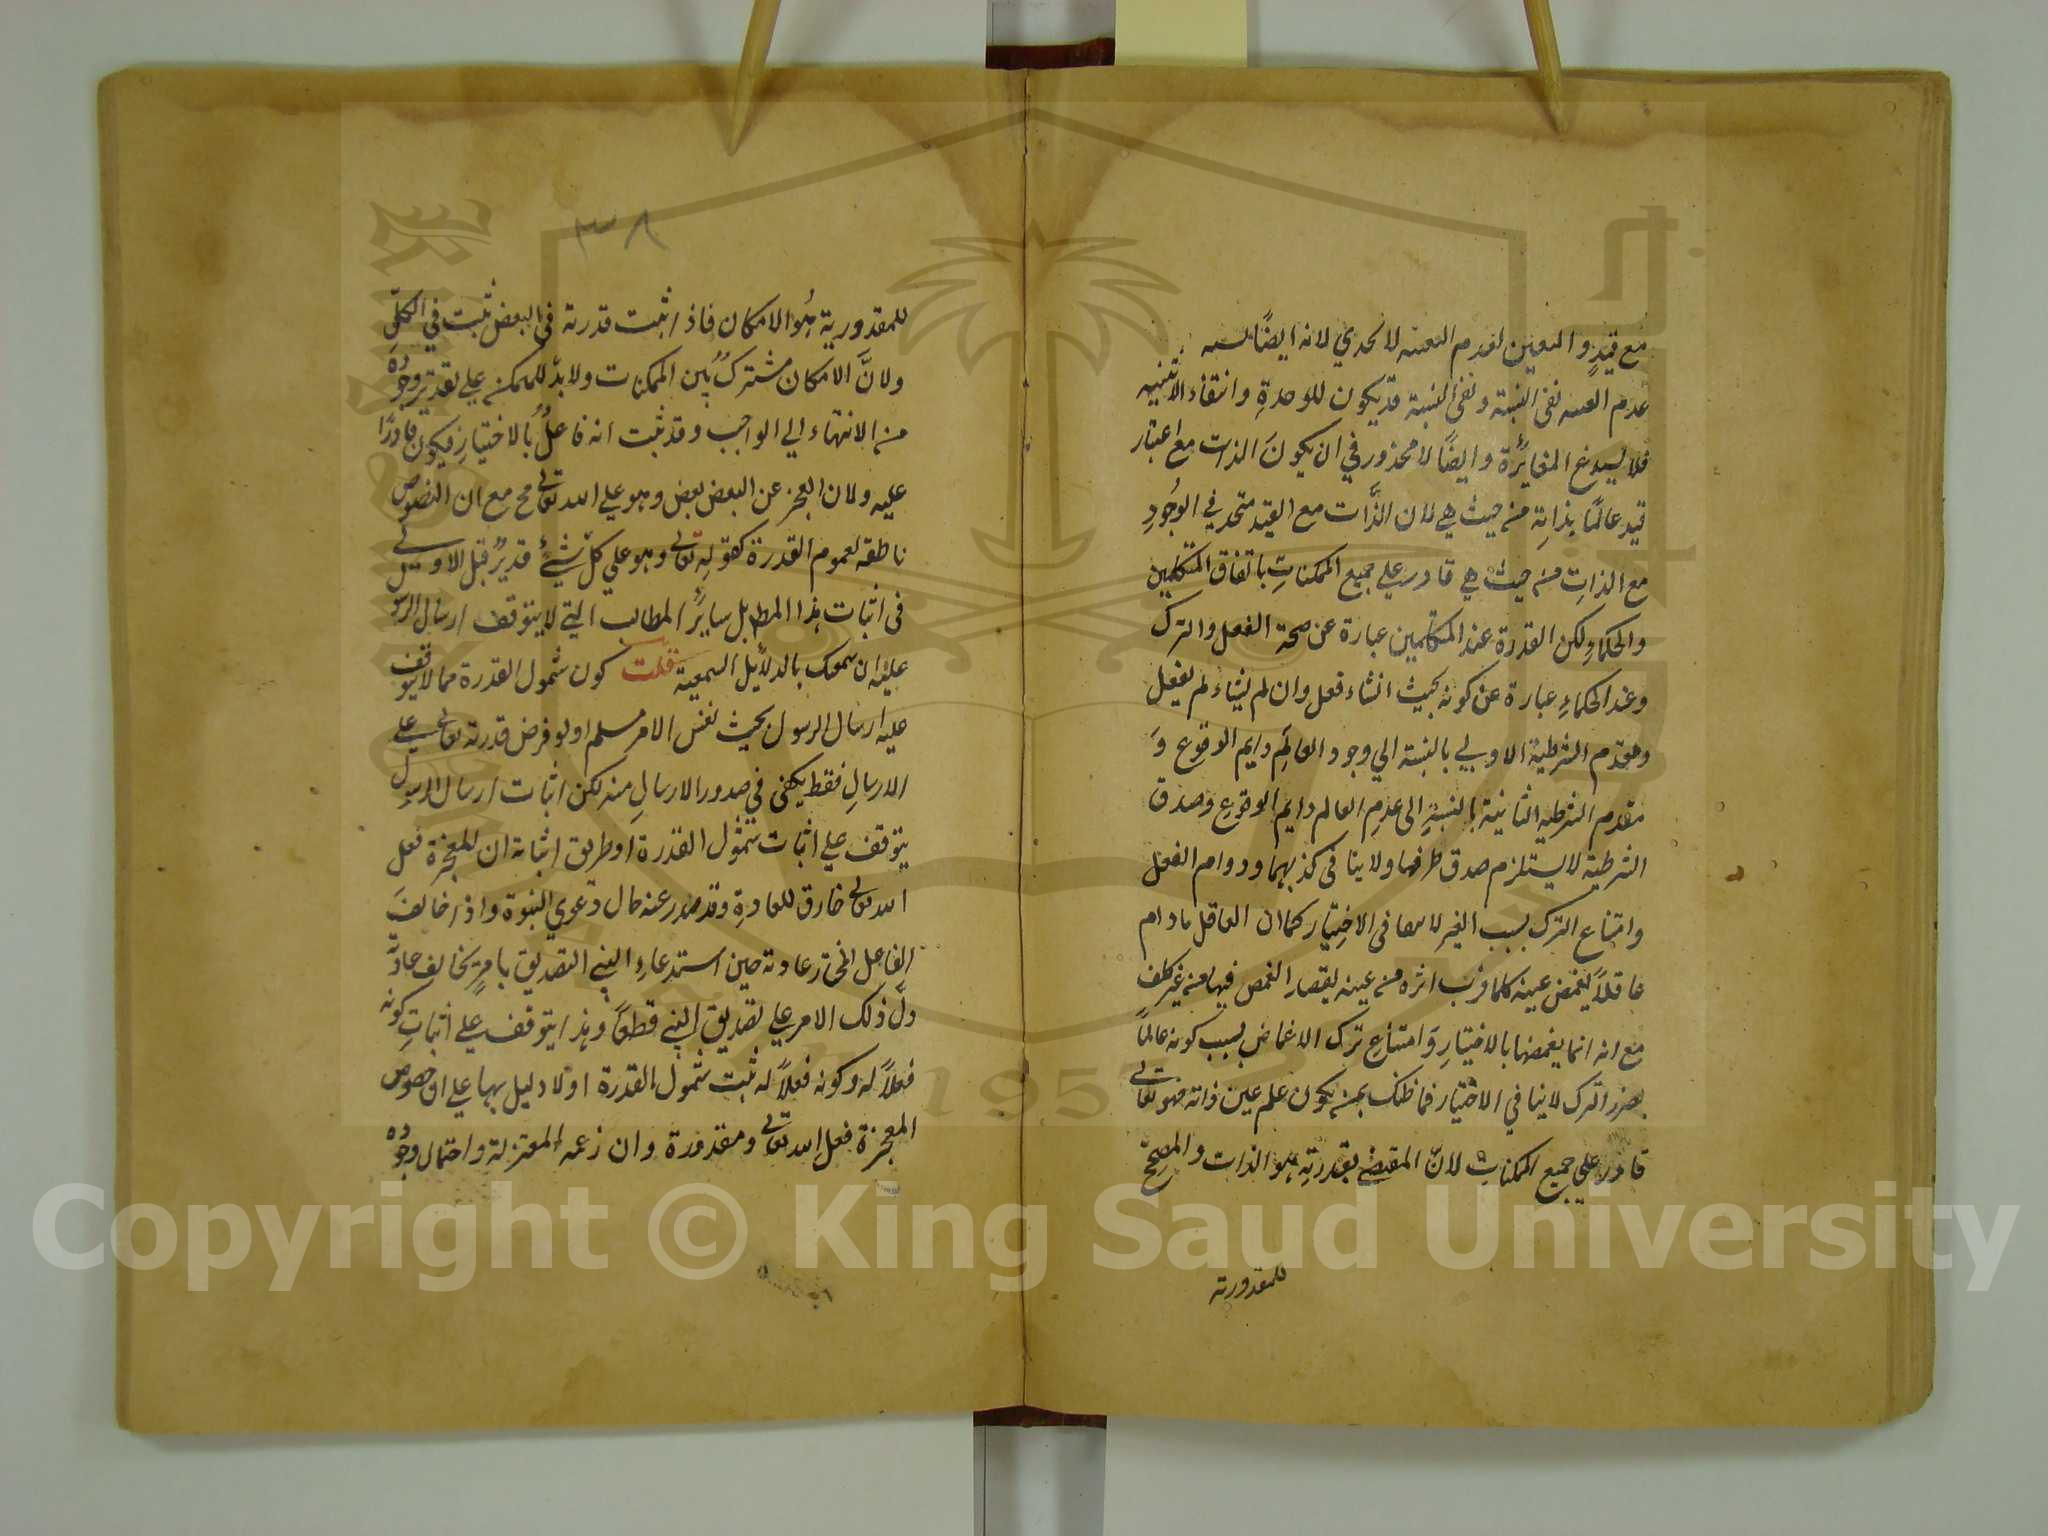 مع قيدٍ والتعين لعدم الغيبة لا يجدي لانه ايضًا لسه
عدم الغيبة نفى النسبة ونفى النسبة قد يكون للوحدةِ وانتفاء الاثنينية
فلا يسوغ المغايرة وايضًا لا محذور في ان يكونَ الذات مع اعتبار
قيد عالمًا بذاتِه من حيث هي لان الذَّات مع القيد متحد في الوُجُودِ
مع الذاتِ من حيث هي قادر على جميع الممكناتِ باتفاق المتكلمين
والحكماءِ لكن القدرة عند المتكلمين عبارة عن صحة الفعل والترك
وعند الحكماءِ عبارة عن كونه بحيث ان شاء فعل وان لم يشاء لم يفعل
ومقدم الشرطية الاولى بالنسبة الي وجود العالَمِ دايم الوقوع وَ
مقدم الشرطية الثانية بالنسبةِ الى عدمِ العالم دايم الوقوع وصدق
الشرطية لا يستلزم صدق طرفها ولا ينافى كذبهما ودوام الفعل
وامتناع الترك بسبب الغير لا ينافى الاختيار كما ان العاقل مادام
عاقلاً يغمض عينه كلما قرب ابرة من عينه بقصد الغمض فيها من غير تخلف
مع انه انما يغمضها بالاختيارِ وَامتناع ترك الاغماض بسبب كونه عالمًا
بضرر الترك لا ينافي الاختيار فما ظنك بمن يكون علم عين ذاته فهو تعالى
قادر علي جميع الممكناتِ لانّ المقتضي بقدرتِه هو الذات والمصحّح
للمقدورية
٣٨
للمقدورية هُو الامكان فاذا ثبت قدرته فى البعض ثبت في الكلِّ
ولانَّ الامكان مشتركٌ بين الممكنات ولا بدّ للممكن علي تقدير وجوده
من الانتهاء الي الواجب وقد ثبت انه فاعلٌ بالاختيارِ فيكون قادرًا
عليه ولان العجز عن البعض نقص وهو علي الله تعالى مح مع ان النصوص
ناطقة بعموم القدرة كقولِه تعالى وهو علي كلّ شيءٍ قديرٌ قبل الاولى
فى اثبات هذا المطلب بل سايرُ المطالب التي لا يتوقف ارسال الرسو
عليه ان يتمسك بالدلايل السمعية قلت كون شمول القدرة مما لا يتوقف
عليه ارسال الرسول بحيث نفس الامر مسلم او لو فرض قدرته تعالى علي
الارسالِ فقط يكفى في صدور الارسالِ منه لكن اثبات ارسال الرسول
يتوقف علي اثبات شمول القدرة او طريق اثباته ان المعجزة فعل
الله تعالى خارق للعادةِ وقد صدر عنه حال دعوي النبوة واذا خالفَ
الفاعل المختار عادته حين استدعاءِ النبي التصديق بامرٍ يخالف عادته
دلّ ذلك الامر علي تصديق النبي قطعًا وهذا يتوقف علي اثباتِ كونه
فعلاً له وكونه فعلاً له ثبت شمول القدرة او لا دليل بها علي ان خصوص
المعجزة فعل الله تعالى ومقدورة وان زعمه المعتزلة واحتمال وجوده
Copyright © King Saud University
1957